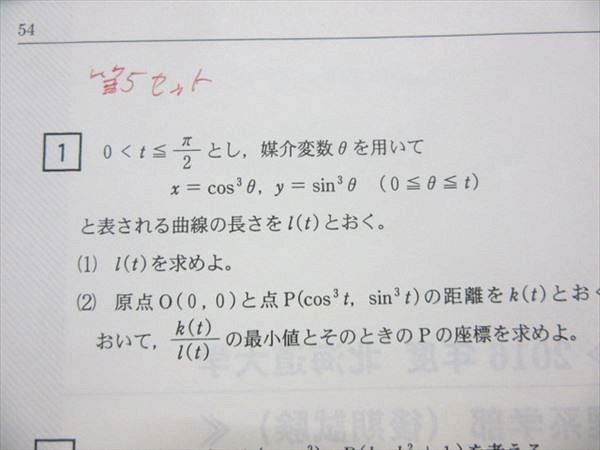 54
第5セット
1 0 < t ≦ π/2 とし,媒介変数 θ を用いて
x = cos³θ, y = sin³θ (0 ≦ θ ≦ t)
と表される曲線の長さを l(t) とおく。
(1) l(t) を求めよ。
(2) 原点 O(0, 0) と点 P(cos³t, sin³t) の距離を k(t) とおく
おいて, k(t)/l(t) の最小値とそのときの P の座標を求めよ。
2016 年度 北海道大学
理系学部(後期試験) ≪
を考える